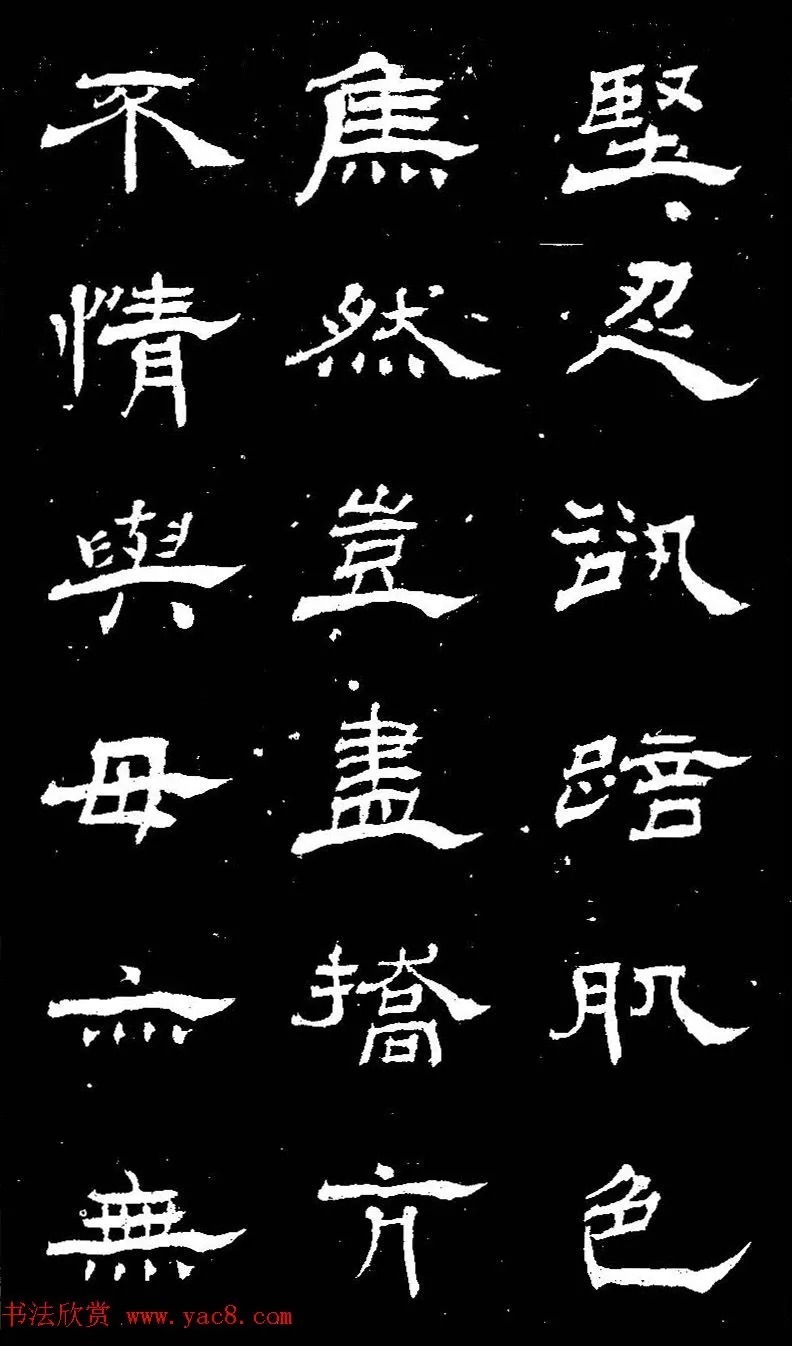 堅忍訊踣肌色
焦然豈盡撟亢
不情與毋亦無
书法欣赏 www.yac8.com